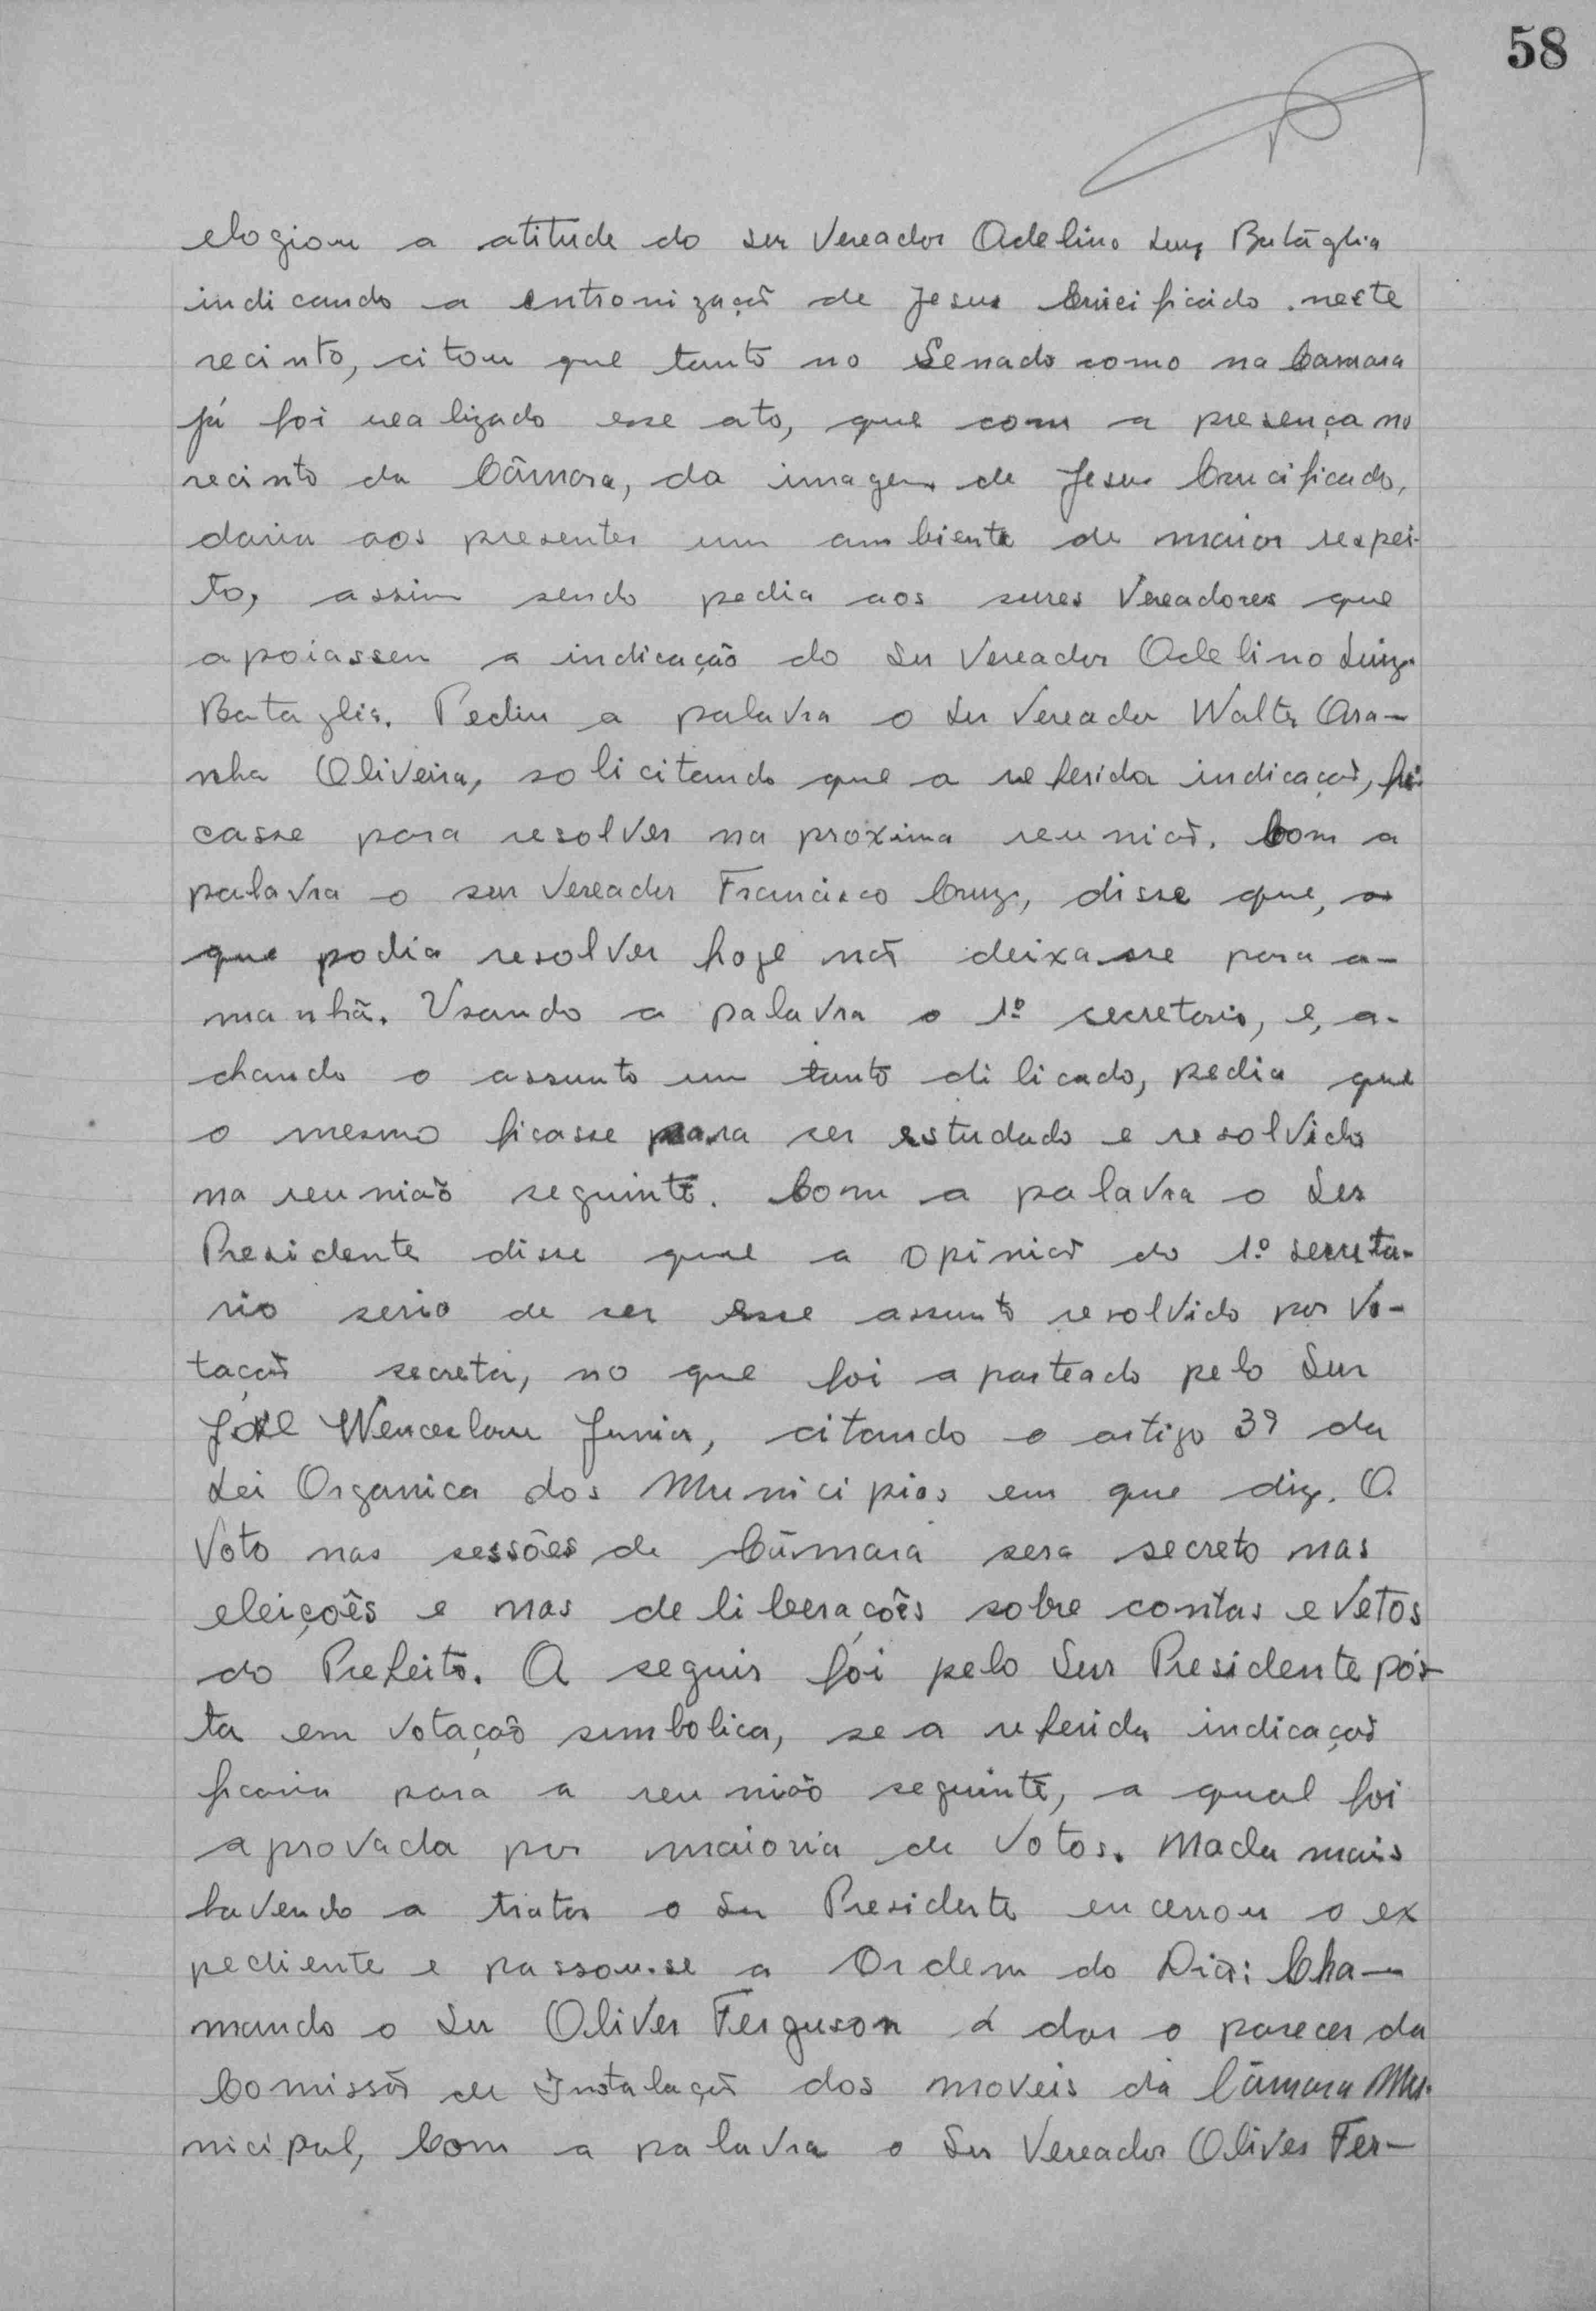 58
elogiou a atitude do snr Vereador Adelino Luiz Batáglia
indicando a entronização de Jesus Crucificado neste
recinto, citou que tanto no Senado como na Camara
já foi realizado esse ato, que com a presença no
recinto da Câmara, da imagem de Jesus Crucificado,
daria aos presentes um ambiente de maior respei-
to, assim sendo pedia aos snres Vereadores que
apoiassem a indicação do Snr Vereador Adelino Luiz
Bataglia. Pediu a palavra o Snr Vereador Walter Ara-
nha Oliveira, solicitando que a referida indicação, fi-
casse para resolver na proxima reunião. Com a
palavra o snr Vereador Francisco Cruz, disse que, o
que podia resolver hoje não deixasse para a-
manhã. Usando a palavra o 1º secretario, e, a-
chando o assunto um tanto dilicado, pedia que
o mesmo ficasse para ser estudado e resolvido
na reunião seguinte. Com a palavra o Snr
Presidente disse que a opinião do 1º secreta-
rio seria de ser esse assunto resolvido por vo-
tação secreta, no que foi aparteado pelo Snr
José Wenceslau Junior, citando o artigo 39 da
Lei Organica dos Municipios em que diz. O
Voto nas sessões de Câmara sera secreto nas
eleições e nas deliberações sobre contas e Vetos
do Prefeito. A seguir foi pelo Snr Presidente pós-
ta em votação simbolica, se a referida indicação
ficaria para a reunião seguinte, a qual foi
aprovada por maioria de Votos. Nada mais
havendo a tratar o Snr Presidente encerrou o ex
pediente e passou-se a Ordem do Dia: Cha-
mando o Snr Oliver Ferguson á dar o parecer da
Comissão de Instalação dos moveis da Câmara Mu-
nicipal, Com a palavra o Snr Vereador Oliver Fer-